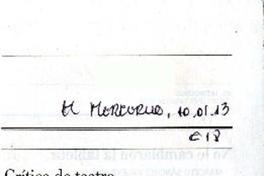 El Mercurio, 10.01.13
C18
Crítica de teatro